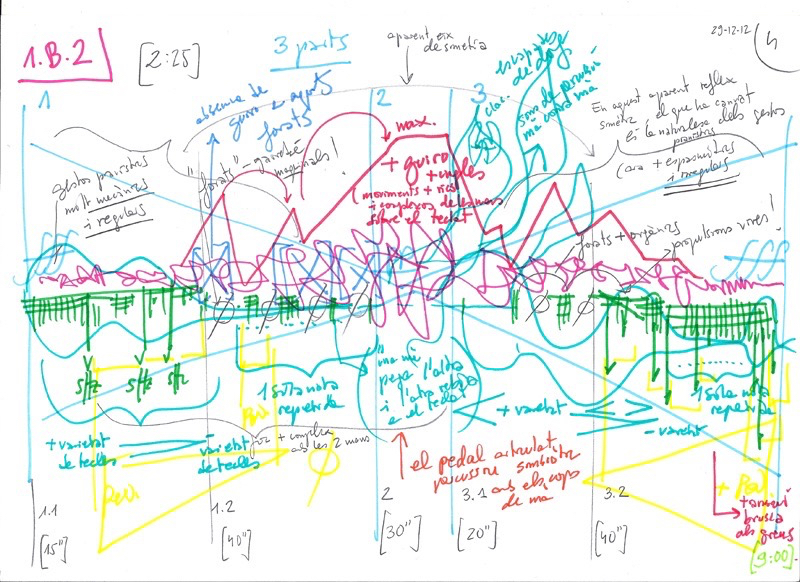 1.B.2
[2:25]
3 parts
aparent eix
de simetria
29-12-12
4
1
2
3
absència de
güiro e aguts
forats
max.
+ güiro
+ ungles
(moviments + rics
i complexos de les mans
sobre el teclat
escapades
de dits
sons de percussió
mà contra mà
En aquest aparent reflex
simètric el que ha canviat
és la naturalesa dels gestos
pianístics
(ara + espasmòdics
i irregulars
gestos pianístics
molt mecànics
i regulars
"forats"
marginals!
forats + orgànics
propulsions vives!
sfz
sfz
sfz
1 sola nota
repetida
"ma mà
pega l'altra
i l'altra
e el teclat
+ varietat
- varietat
1 sola nota
repetida
+ varietat
de tecles
- varietat
de tecles
amb les 2 mans
el pedal articulat,
percussiu simbiòtic
amb els cops
de mà
Pedi
+ Ped.
+ aviat
brusca
als greus
1.1
[15"]
1.2
[40"]
2
[30"]
3.1
[20"]
3.2
[40"]
[9:00]